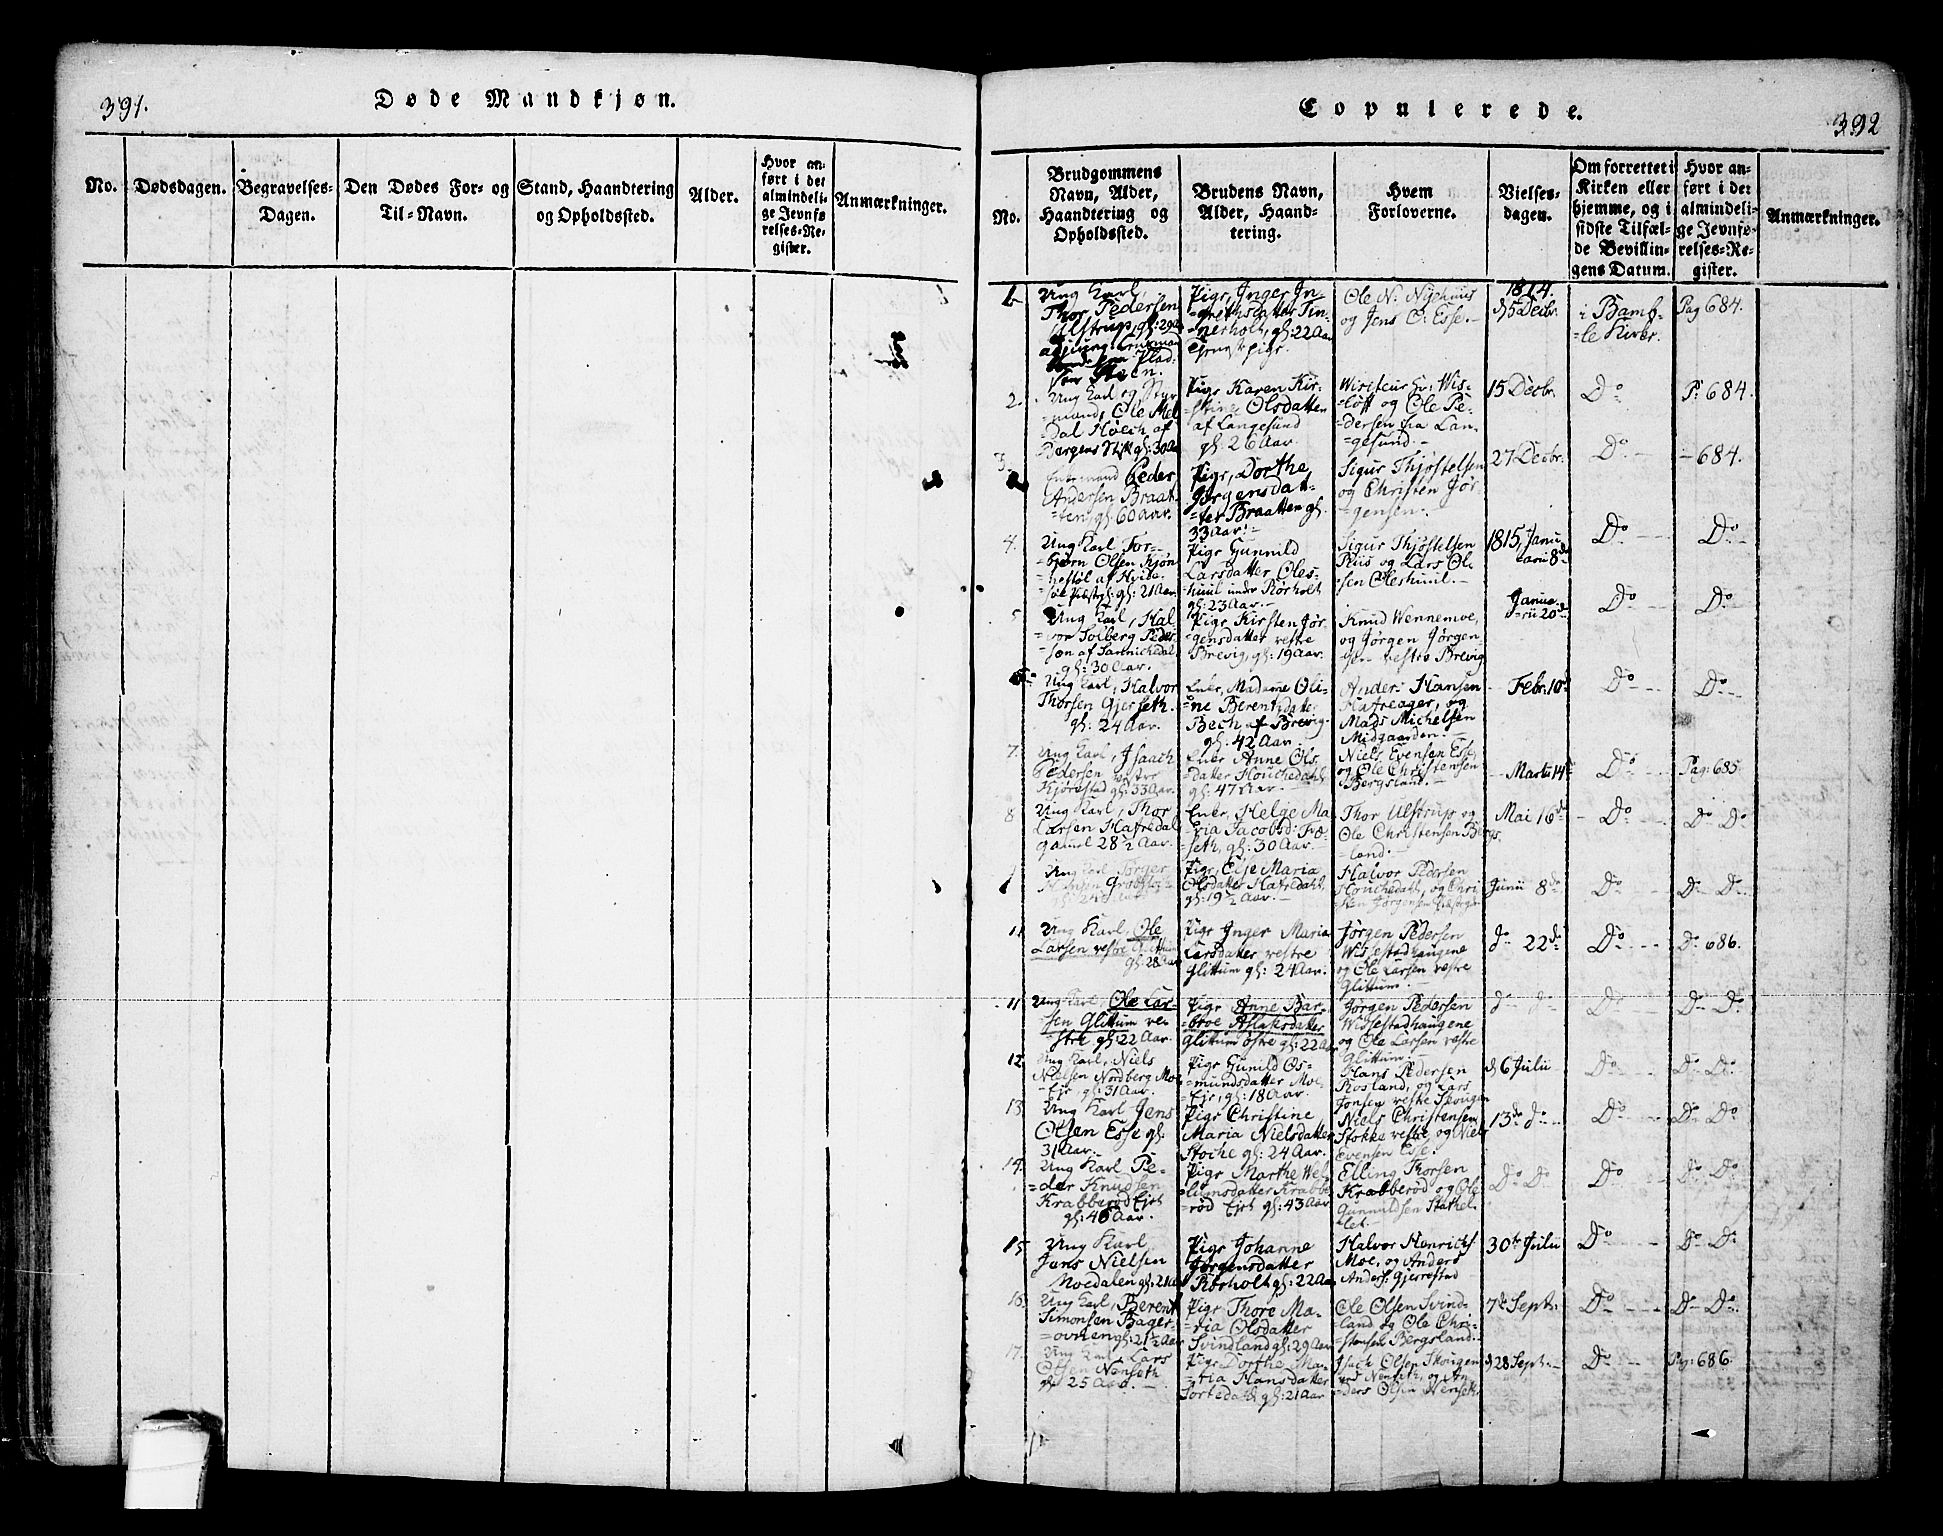 391.
Døde Mandkjøn.
No.
Dødsdagen.
Begravelses-
Dagen.
Den Dødes For- og
Til-Navn.
Stand, Haandtering
og Opholdssted.
Alder.
Hvor an-
ført i det
almindeli-
ge Jevnfø-
relses-Re-
gister.
Anmærkninger.
Copulerede.
392
No.
Brudgommens
Navn, Alder,
Haandtering og
Opholdssted.
Brudens Navn,
Alder, Haand-
tering.
Hvem
Forloverne.
Vielses-
dagen.
Om forrettet i
Kirken eller
hjemme, og i
sidste Tilfæl-
de Bevillin-
gens Datum.
Hvor an-
ført i det
almindeli-
ge Jevnfø-
relses-Re-
gister.
Anmærkninger.
1.
Ung Karl,
Thor Pedersen
Ulstrup, gl: 29
Pladsen Steen.
Pige, Inger In-
=grethsdatter Tin-
=nerholt, gl: 22 Aar
Ole N: Nyehuus
og Jens O: Esse.-
1814.
d 5 Decbr.
i Bamb-
=le Kirke.
Pag 684.
2.
Ung Karl og Styr
=mand, Ole Mel
Dal Høech af
Bergens Stift gl: 30 A
Pige Karen Kir-
=stine Olsdatter
af Langesund
gl: 26 Aar
og Ole Pe-
=dersen fra Lan-
=gesund.-
15 Decbr.
Do
P: 684.
3.
Enkemand Peder
Andersen Braat-
=ten, gl: 60 Aar.
Pige, Dorthe
Jørgensdat-
=ter Braatten gl:
33 Aar.-
Sigur Thjøstelsen
og Christen Jør-
=gensen.-
27 Decbr.
Do
- 684.
4.
Ung Karl, Tor-
=bjørn Olsen Kjøn
=nestøl af Hvide-
=søe Præstgl: gl: 21 Aar.
Pige Gunnild
Larsdatter Oles-
=huul under Rørholt
gl: 23 Aar.-
Sigur Thjøstelsen
Riis og Lars Ol-
=sen Oleshuul.-
1815, Janu
=arii 8de
Do
Do
5
Ung Karl, Hal-
=vor Solberg Peder-
=sen af Sannichedal
gl: 30 Aar.
Pige Kirsten Jør-
=gensdatter vestre
Brevig, gl: 19 Aar.
Knud Wennemoe,
og Jørgen Jørgen-
=sen vestre Brevig
Janua-
=rii 20de
Do
Do
6
Ung Karl, Halvor
Thorsen Gjerseth.
gl: 24 Aar
Enke, Madame Oli-
=ne Berentsdatter
Bech af Brevig
gl: 42 Aar.
Anders Hansen
Hafreager, og
Mads Michelsen
Midgaarden.-
- Febr. 10de
Do
Do
7.
Ung Karl, Isaach
Pedersen vestre
Kjørestad gl: 33 Aar.
Enke Anne Ols
=datter Houchedahl
gl: 47 Aar.-
Niels Evensen Esse
og Ole Christensen
Bergsland.-
- Martii 14de
Do
Pag: 685.
8
Ung Karl, Thor
Larsen Hafredal
gamel 28 1/2 Aar.
Enke, Helge Ma
=ria Jacobsd: Træ-
=seth, gl: 30 Aar.-
Thor Ulstrup og
Ole Christensen Bergs-
=land.-
Mai 16de
- Do
Do Do
9
Ung Karl Jørger
gl: 24
Pige, Else Maria
Olsdatter Hafredahl.
gl: 19 1/2 Aar.-
Halvor Pedersen
Houchedahl, og Chri
=sten Jørgensen
Junii 8de
Do
Do Do
11
Ung Karl, Ole
Larsen vestre Glittum
gl: 28 Aar
Pige Inger Maria
Larsdatter vestre
Glittum gl: 24 Aar.
Jørgen Pedersen
Wissestadhaugene
og Ole Larsen vestre
Glittum.-
do 22de
Do
Do 686.
11
Ung Karl, Ole Lar-
=sen Glittum ve-
=stre gl: 22 Aar.
Pige Anne Bar-
=broe Aslaksdatter
Glittum østre gl: 22 Aar
Jørgen Pedersen
Wissestadhaugene
og Ole Larsen vestre
Glittum.-
do do
Do
Do Do
12.
Ung Karl, Niels
Nielsen Nordberg Moe
Eje, gl: 31 Aar.
Pige Gunild Os-
=mundsdatter Moe
=Eje, gl: 18 Aar.
Hans Pedersen
Rosland, og Lars
Jonsen vestre Skougen
d 6 Julii
Do
Do Do
13.
Ung Karl Jens
Olsen Esse gl:
31 Aar.
Pige Christine
Maria Nielsdatter
Stoche gl: 24 Aar.
Niels Christensen
Stokke vestre, og Niels
Evensen Esse.
13de do
Do
Do Do
14.
Ung Karl Pe-
=der Knudsen
Krabberød Ejet
gl: 46 Aar.
Pige Marthe Wel-
=lumsdatter Krabbe
=rød Ejet gl: 43 Aar
Elling Thorsen
Krabberød og Ole
Gunnildsen Stathel-
=let.-
Do Do
Do
Do Do
15
Ung Karl
Jens Nielsen
Moedalen gl: 21 Aar
Pige Johanne
Jørgensdatter
Rørholt gl: 22 Aar
Halvor Henrichs
Moe, og Anders
Anders: Gjerrestad
30te Julii
Do
Do Do
16.
Ung Karl, Berent
Simonsen Bager-
=ovnen gl: 21 1/2 Aar
Pige Thore Ma-
=ria Olsdatter
Svindland gl: 29 Aar
Ole Olsen Svind-
=land og Ole Chri-
=stensen Bergsland.
7de Septr.
Do
Do Do
17.
Ung Karl Lars
Olsen Nenseth
gl: 25 Aar.-
Pige Dorthe Ma-
=ria Hansdatter
Tortedahl gl: 21 Aar
Isach Olsen Skougen
ved Nenseth, og An-
=ders Olsen Nenseth
d 28 Septr.
Do
Pag: 686.